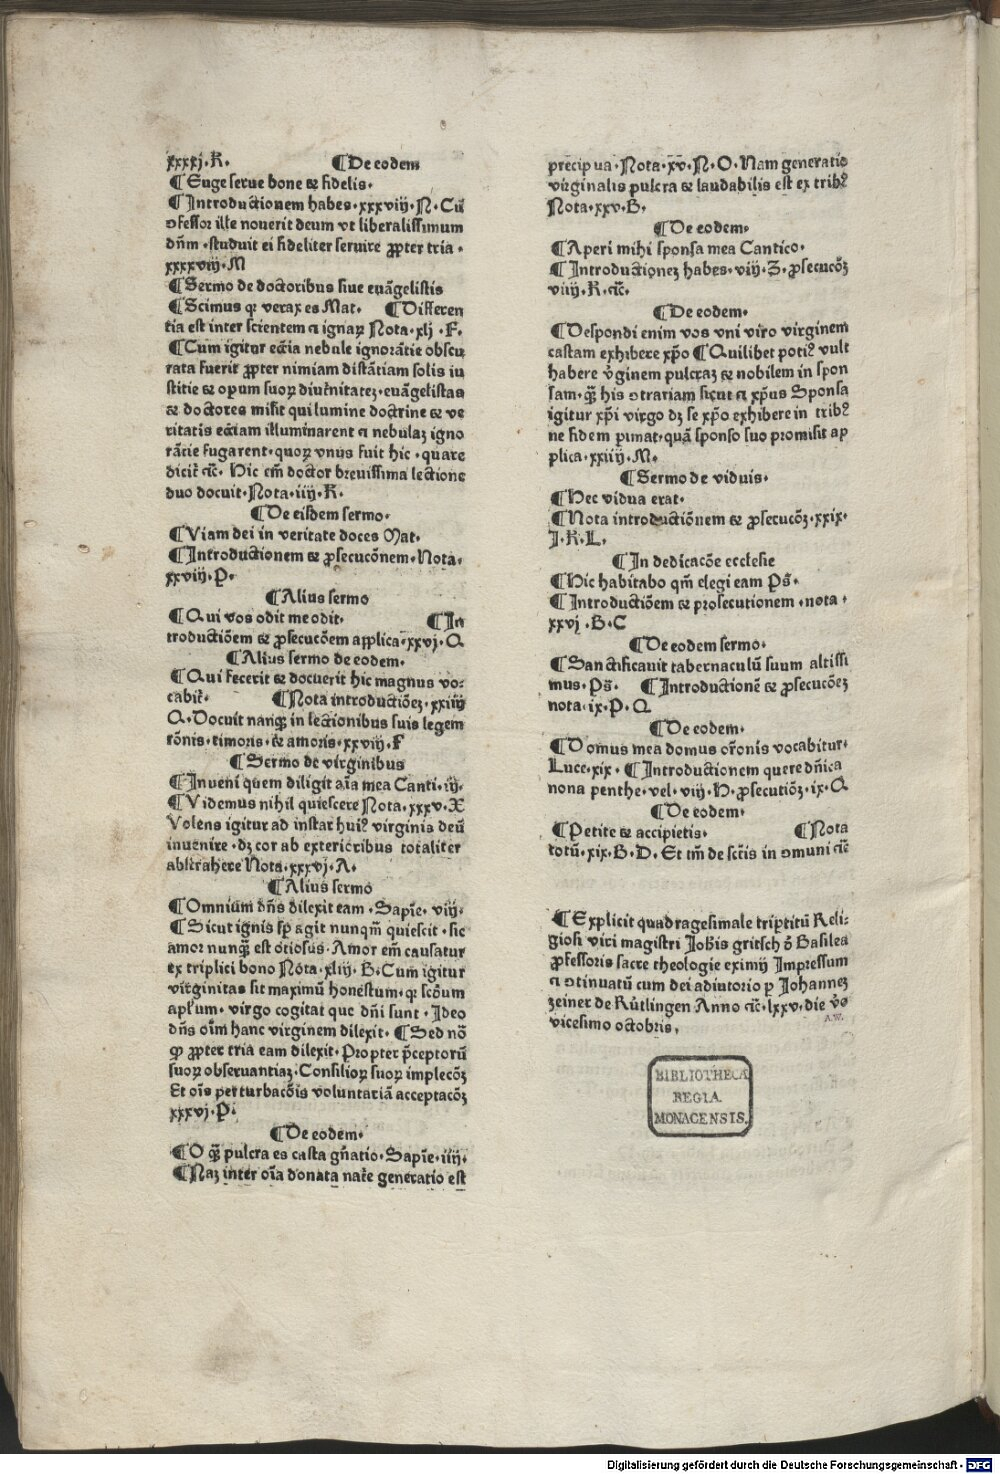 xxxxj.R. ¶De eodem
¶Euge serue bone ⁊ fidelis.
¶Introductionem habes.xxxviij.N.Cū
ɔfessor ille nouerit deum vt liberalissimum
dn̄m.studuit ei fideliter seruire ꝓpter tria.
xxxxviij.M
¶Sermo de doctoribus siue euāgelistis
¶Scimus qꝛ verax es Mat. ¶Differen
tia est inter scientem ⁊ ignaꝝ Nota.xlj.F.
¶Cum igitur ecc̄ia nebule ignorātie obscu
rata fuerit ꝓpter nimiam distātiam solis iu
stitie ⁊ opum suoꝝ diut̄nitateꝫ.euāgelistas
⁊ doctores misit qui lumine doctrine ⁊ ve
ritatis ecc̄iam illuminarent ⁊ nebulaꝫ igno
rātie fugarent.quoꝝ vnus fuit hic.quare
dicit̄ ⁊c̄. Hic em̄ doctor breuissima lectione
duo docuit.Nota.iiij.K.
¶De eisdem sermo.
¶Viam dei in veritate doces Mat.
¶Introductionem ⁊ ꝓsecucōnem.Nota.
xxviij.P.
¶Alius sermo
¶Qui vos odit me odit. ¶In
troductiōem ⁊ ꝓsecucōem applica.xxvj.Q
¶Alius sermo de eodem.
¶Qui fecerit ⁊ docuerit hic magnus vo-
cabit̄. ¶Nota introductiōeꝫ.xxiiij
Q.Docuit nanqꝫ in lectionibus suis legem
rōnis.timoris.⁊ amoris.xxviij.F
¶Sermo de virginibus
¶Inueni quem diligit aīa mea Canti.iij.
¶Videmus nihil quiescere Nota.xxxv.X
Volens igitur ad instar huiꝰ virginis deū
inuenire.dꝫ cor ab exterioribus totaliter
abstrahere Nota.xxxvj.A.
¶Alius sermo
¶Omnium dn̄s dilexit eam.Sapiē.viij.
¶Sicut ignis sꝑ agit nunqm̄ quiescit.sic
amor nunqꝫ est otiosus.Amor em̄ causatur
ex triplici bono Nota.xliij.B.Cum igitur
virginitas sit maximū honestum.qꝛ scd̄um
apl̄um.virgo cogitat que dn̄i sunt.Ideo
dn̄s oīm hanc virginem dilexit.¶Sed nō
qꝙ ꝓpter tria eam dilexit.Propter p̄ceptorū
suoꝝ obseruantiaꝫ.Consilioꝝ suoꝝ implecōꝫ
Et oīs perturbacōis voluntariā acceptacōꝫ
xxxvj.P.
¶De eodem.
¶O qꝫ pulcra es casta gn̄atio.Sapiē.iiij.
¶Naꝫ inter oīa donata nat̄e generatio est
precipua.Nota.xv.N.O.Nam generatio
virginalis pulcra ⁊ laudabilis est ex tribꝰ
Nota.xxv.B.
¶De eodem.
¶Aperi mihi sponsa mea Cantico.
¶Introductioneꝫ habes.viij.Z.ꝓsecucōꝫ
viij.K.⁊c̄.
¶De eodem.
¶Despondi enim vos vni viro virginem
castam exhibere xp̄o ¶Quilibet potiꝰ vult
habere v̄ginem pulcraꝫ ⁊ nobilem in spon
sam.qꝫ his ɔtrariam sicut ⁊ xp̄us Sponsa
igitur xp̄i virgo dꝫ se xp̄o exhibere in tribꝰ
ne fidem p̄imat.quā sponso suo promisit ap
plica.xxiiij.M.
¶Sermo de viduis.
¶Hec vidua erat.
¶Nota introductiōnem ⁊ ꝓsecucōꝫ.xxix.
J.K.L.
¶In dedicacōe ecclesie
¶Hic habitabo qm̄ elegi eam Ps̄.
¶Introductiōem ⁊ prosecutionem.nota.
xxvj.B.C
¶De eodem sermo.
¶Sanctificauit tabernaculū suum altissi
mus.Ps̄. ¶Introductionē ⁊ ꝓsecucōeꝫ
nota.ix.P.Q
¶De eodem.
¶Domus mea domus orōnis vocabitur.
Luce.xix.¶Introductionem quere dn̄ica
nona penthe.vel.viij.H.ꝓsecutiōꝫ.ix.Q
¶De eodem.
¶Petite ⁊ accipietis. ¶Nota
totū.xix.B.D.Et tm̄ de sct̄is in ɔmuni ⁊c̄
¶Explicit quadragesimale tripītitū Reli-
giosi viri magistri Joh̄is gritsch ō Basilea
ꝓfessoris sacre theologie eximij Impressum
⁊ ɔtinuatū cum dei adiutorio ꝑ Johanneꝫ
zeiner de Rūtlingen Anno ⁊c̄.lxxv.die v̄o
vicesimo octobris.
A.W.
BIBLIOTHECA
REGIA.
MONACENSIS.
Digitalisierung gefördert durch die Deutsche Forschungsgemeinschaft - DFG